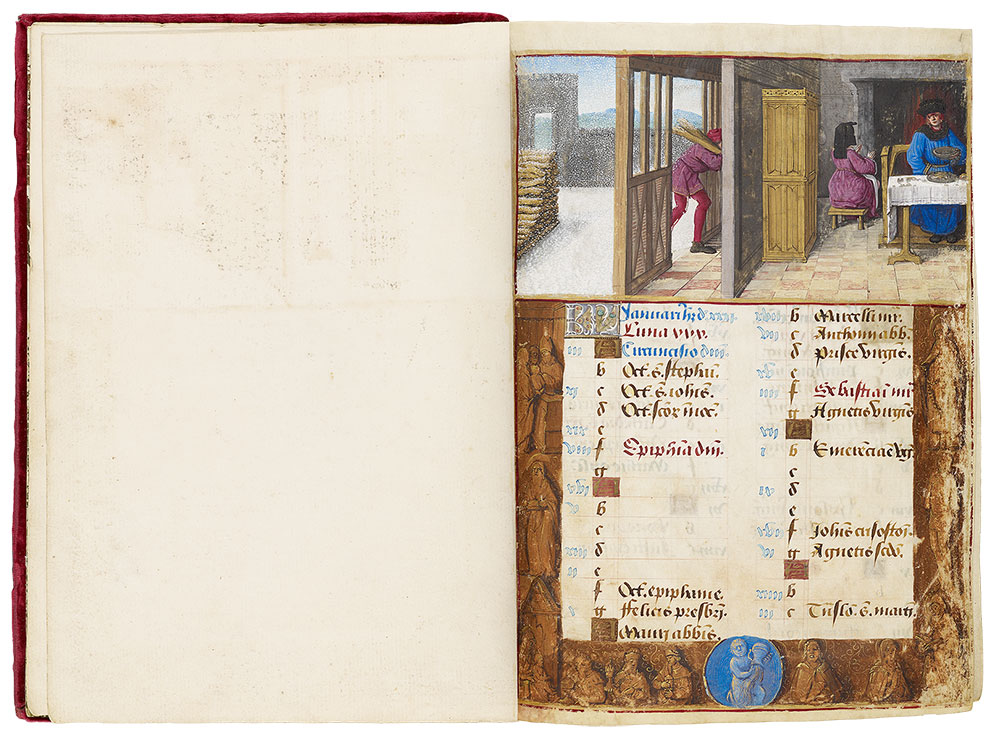 KL Januariꝰ hꝫ d xxxi
Luna xxx.
iii A Circuncisio dñi.
b Oct. s. stephañ.
xi c Oct. s. iohis.
d Oct. scōr inoc.
xix e
viii f Epiphīa dñi.
g
xvi A
v b
c
xiii d
ii e
f Oct. epiphanie.
x g Felicis presbrī.
A Mauri abbis.
xviii b Marcelli mr.
vii c Anthonii abb.
d Prisce virgis.
xv e
iiii f Sebastiani mr
g Agnetis virgis
xii A
i b Emerenciae vg
c
ix d
e
xvii f Johis crisostoī.
vi g Agnetis scdō.
A
xiiii b
iii c s.